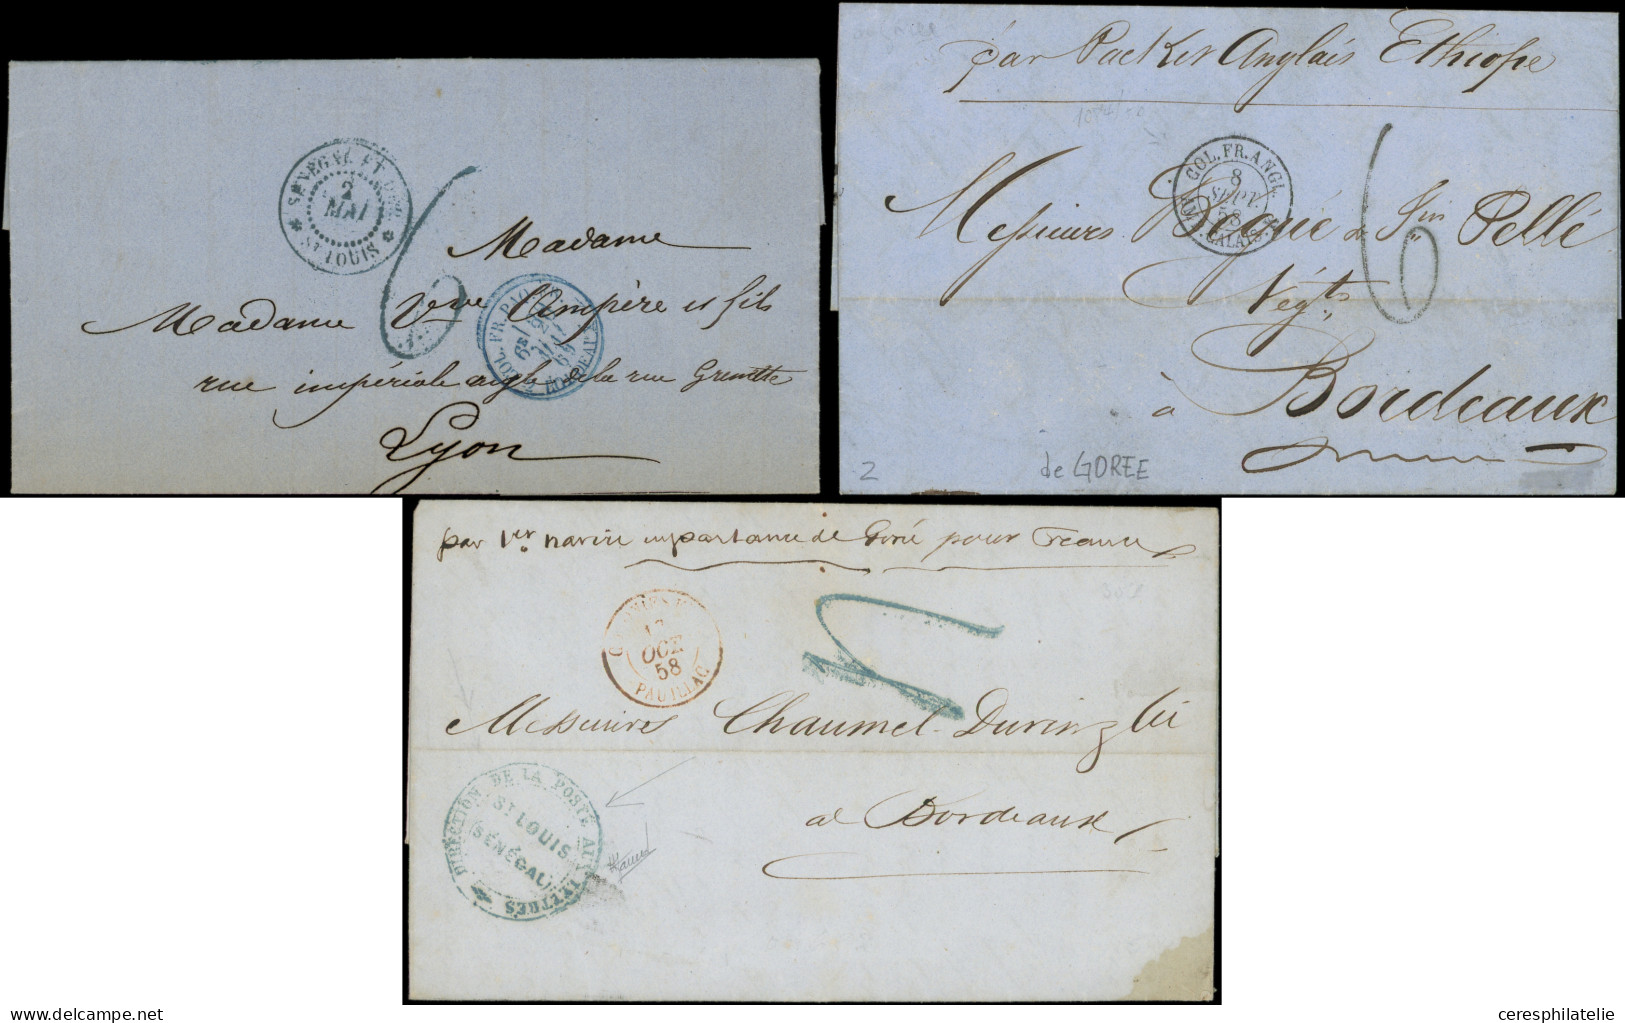 SÉNÉGAL ET DÉP.
2
MAI
ST LOUIS
6
Madame
Madame Vve Ampère et fils
rue impériale angle de la rue Grenette
Lyon
COL. FR. PAQ.
BORDEAUX
par Packet Anglais Ethiope
COL. FR. ANGL.
8
SEPT.
58
AMB. CALAIS
6
Messieurs Sin Pellé
Négts
à Bordeaux
2
de GOREE
par 1er navire en partance de Gorée pour France
OCT
58
PAUILLAC
Messieurs Chaumel-Durin &
DIRECTION DE LA POSTE AUX LETTRES
ST LOUIS
(SÉNÉGAL)
à Bordeaux
www.delcampe.net
ceresphilatelie